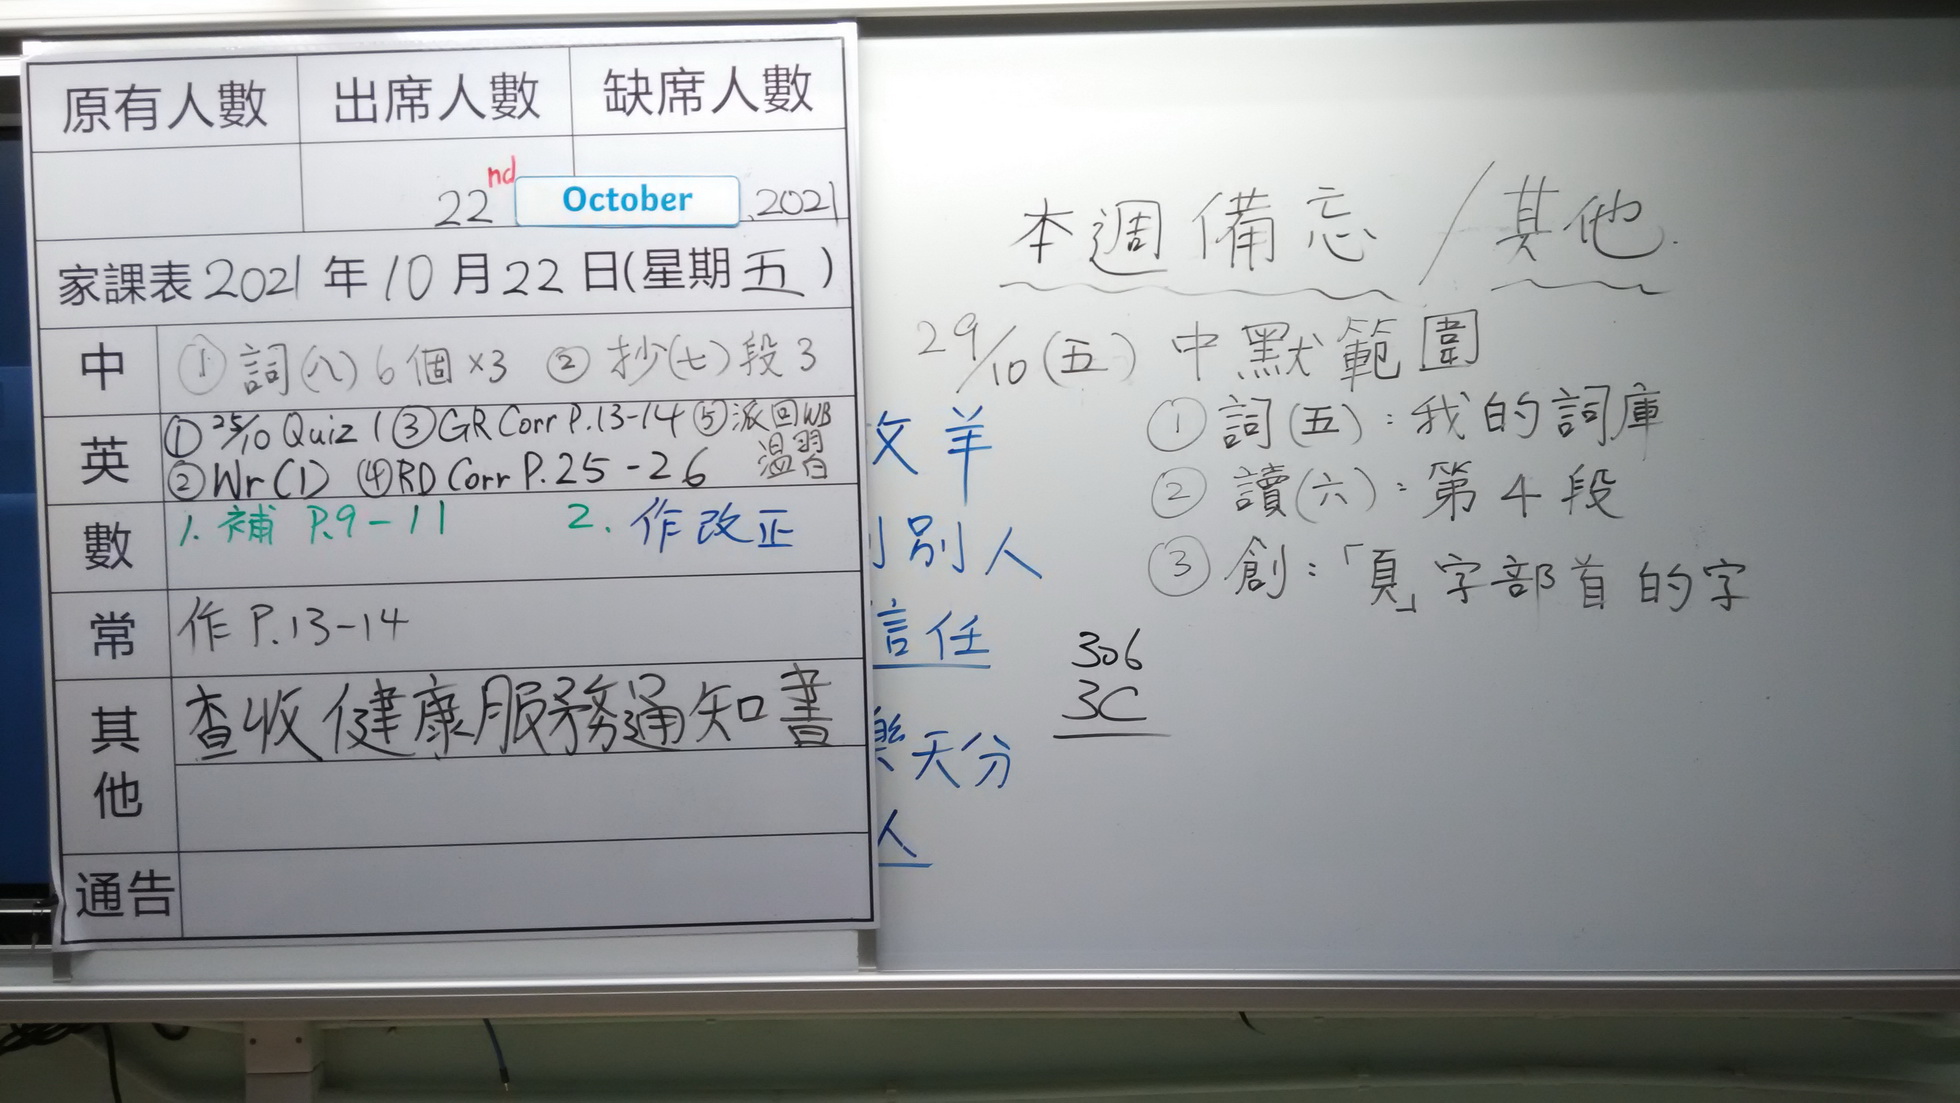 原有人數 出席人數 缺席人數
22nd October, 2021
家課表2021年10月22日(星期五)
中 ①詞(八)6個×3 ②抄(七)段3
英 ①25/10 Quiz 1 ③GR Corr P.13-14 ⑤派回WB
②Wr(1) ④RD Corr P.25-26 溫習
數 1. 補 P.9-11 2. 作改正
常 作 P.13-14
其他 查收健康服務通知書
通告
本週備忘/其他
29/10(五)中默範圍
①詞(五):我的詞庫
②讀(六):第4段
③創:「頁」字部首的字
306
3C
牧羊
別人
信任
樂天分
人